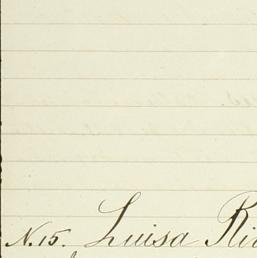 N. 15. Luisa